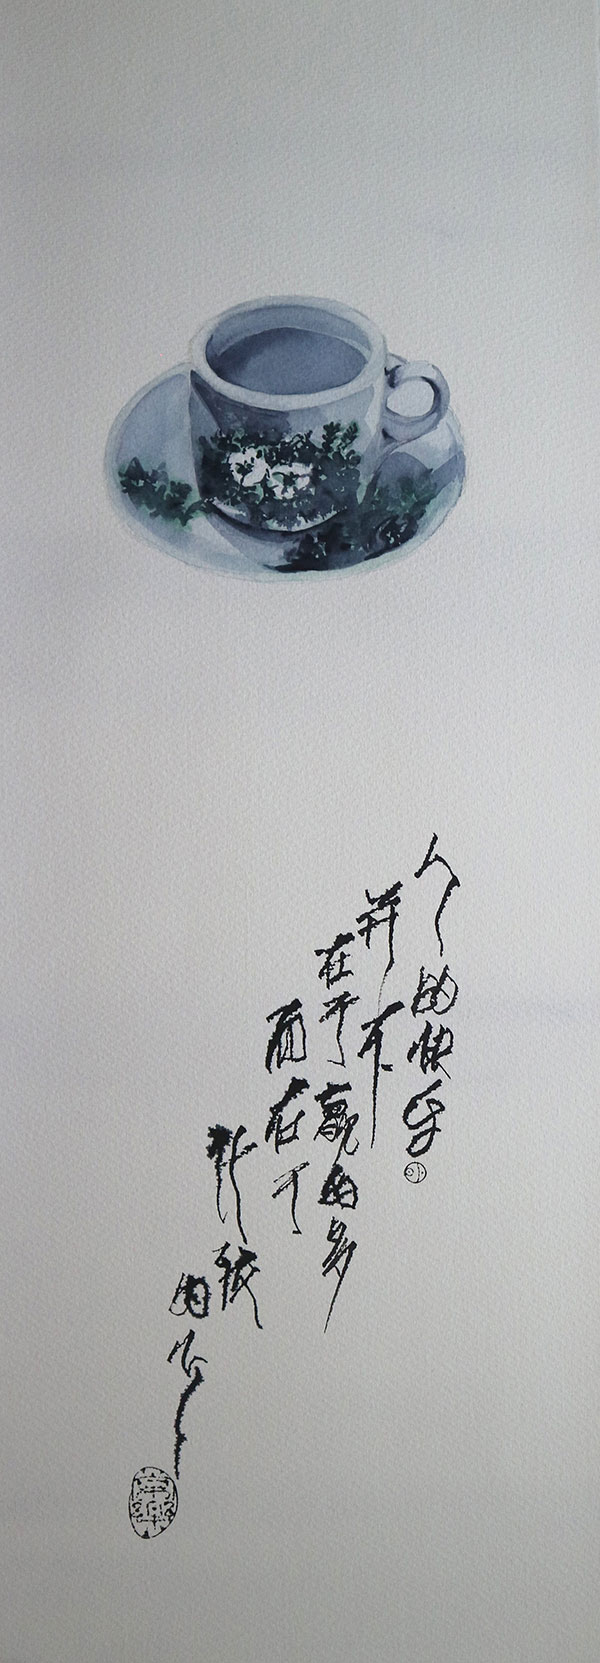 人的快乐
并不
在于赢的多
而在于
计较
的少